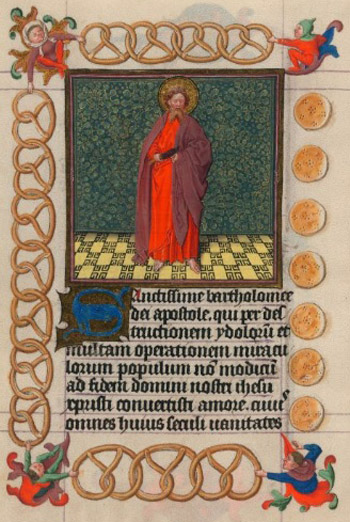 Sanctissime bartholomee
dei apostole. qui per des
tructionem ydolorū et
multam operationem miracu
lorum populum nō modicū
ad fidem domini nostri ihesu
xpristi conuertisti amore. cuius
omnes huius seculi uanitates